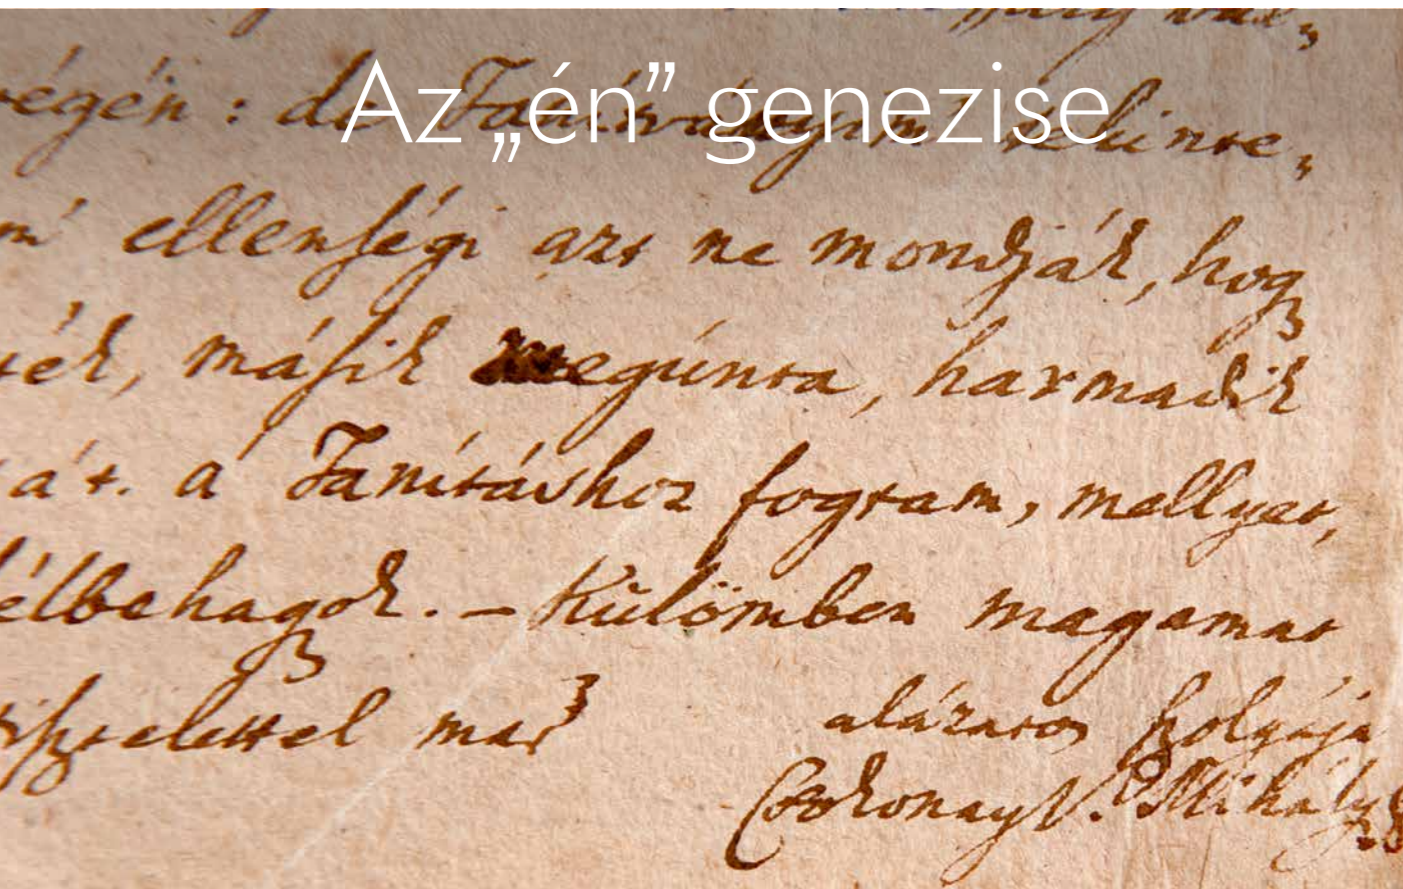 Az „én” genezise
végén: de Tanítványim tekinte,
ellenségi azt ne mondják, hog
másik megúnta, harmadik
át. a' Tanításhoz fogtam, mellyet,
félbehagok. – Külömben magamat
tisztelettel mar
alázatos szolgája
Csokonay V. Mihály